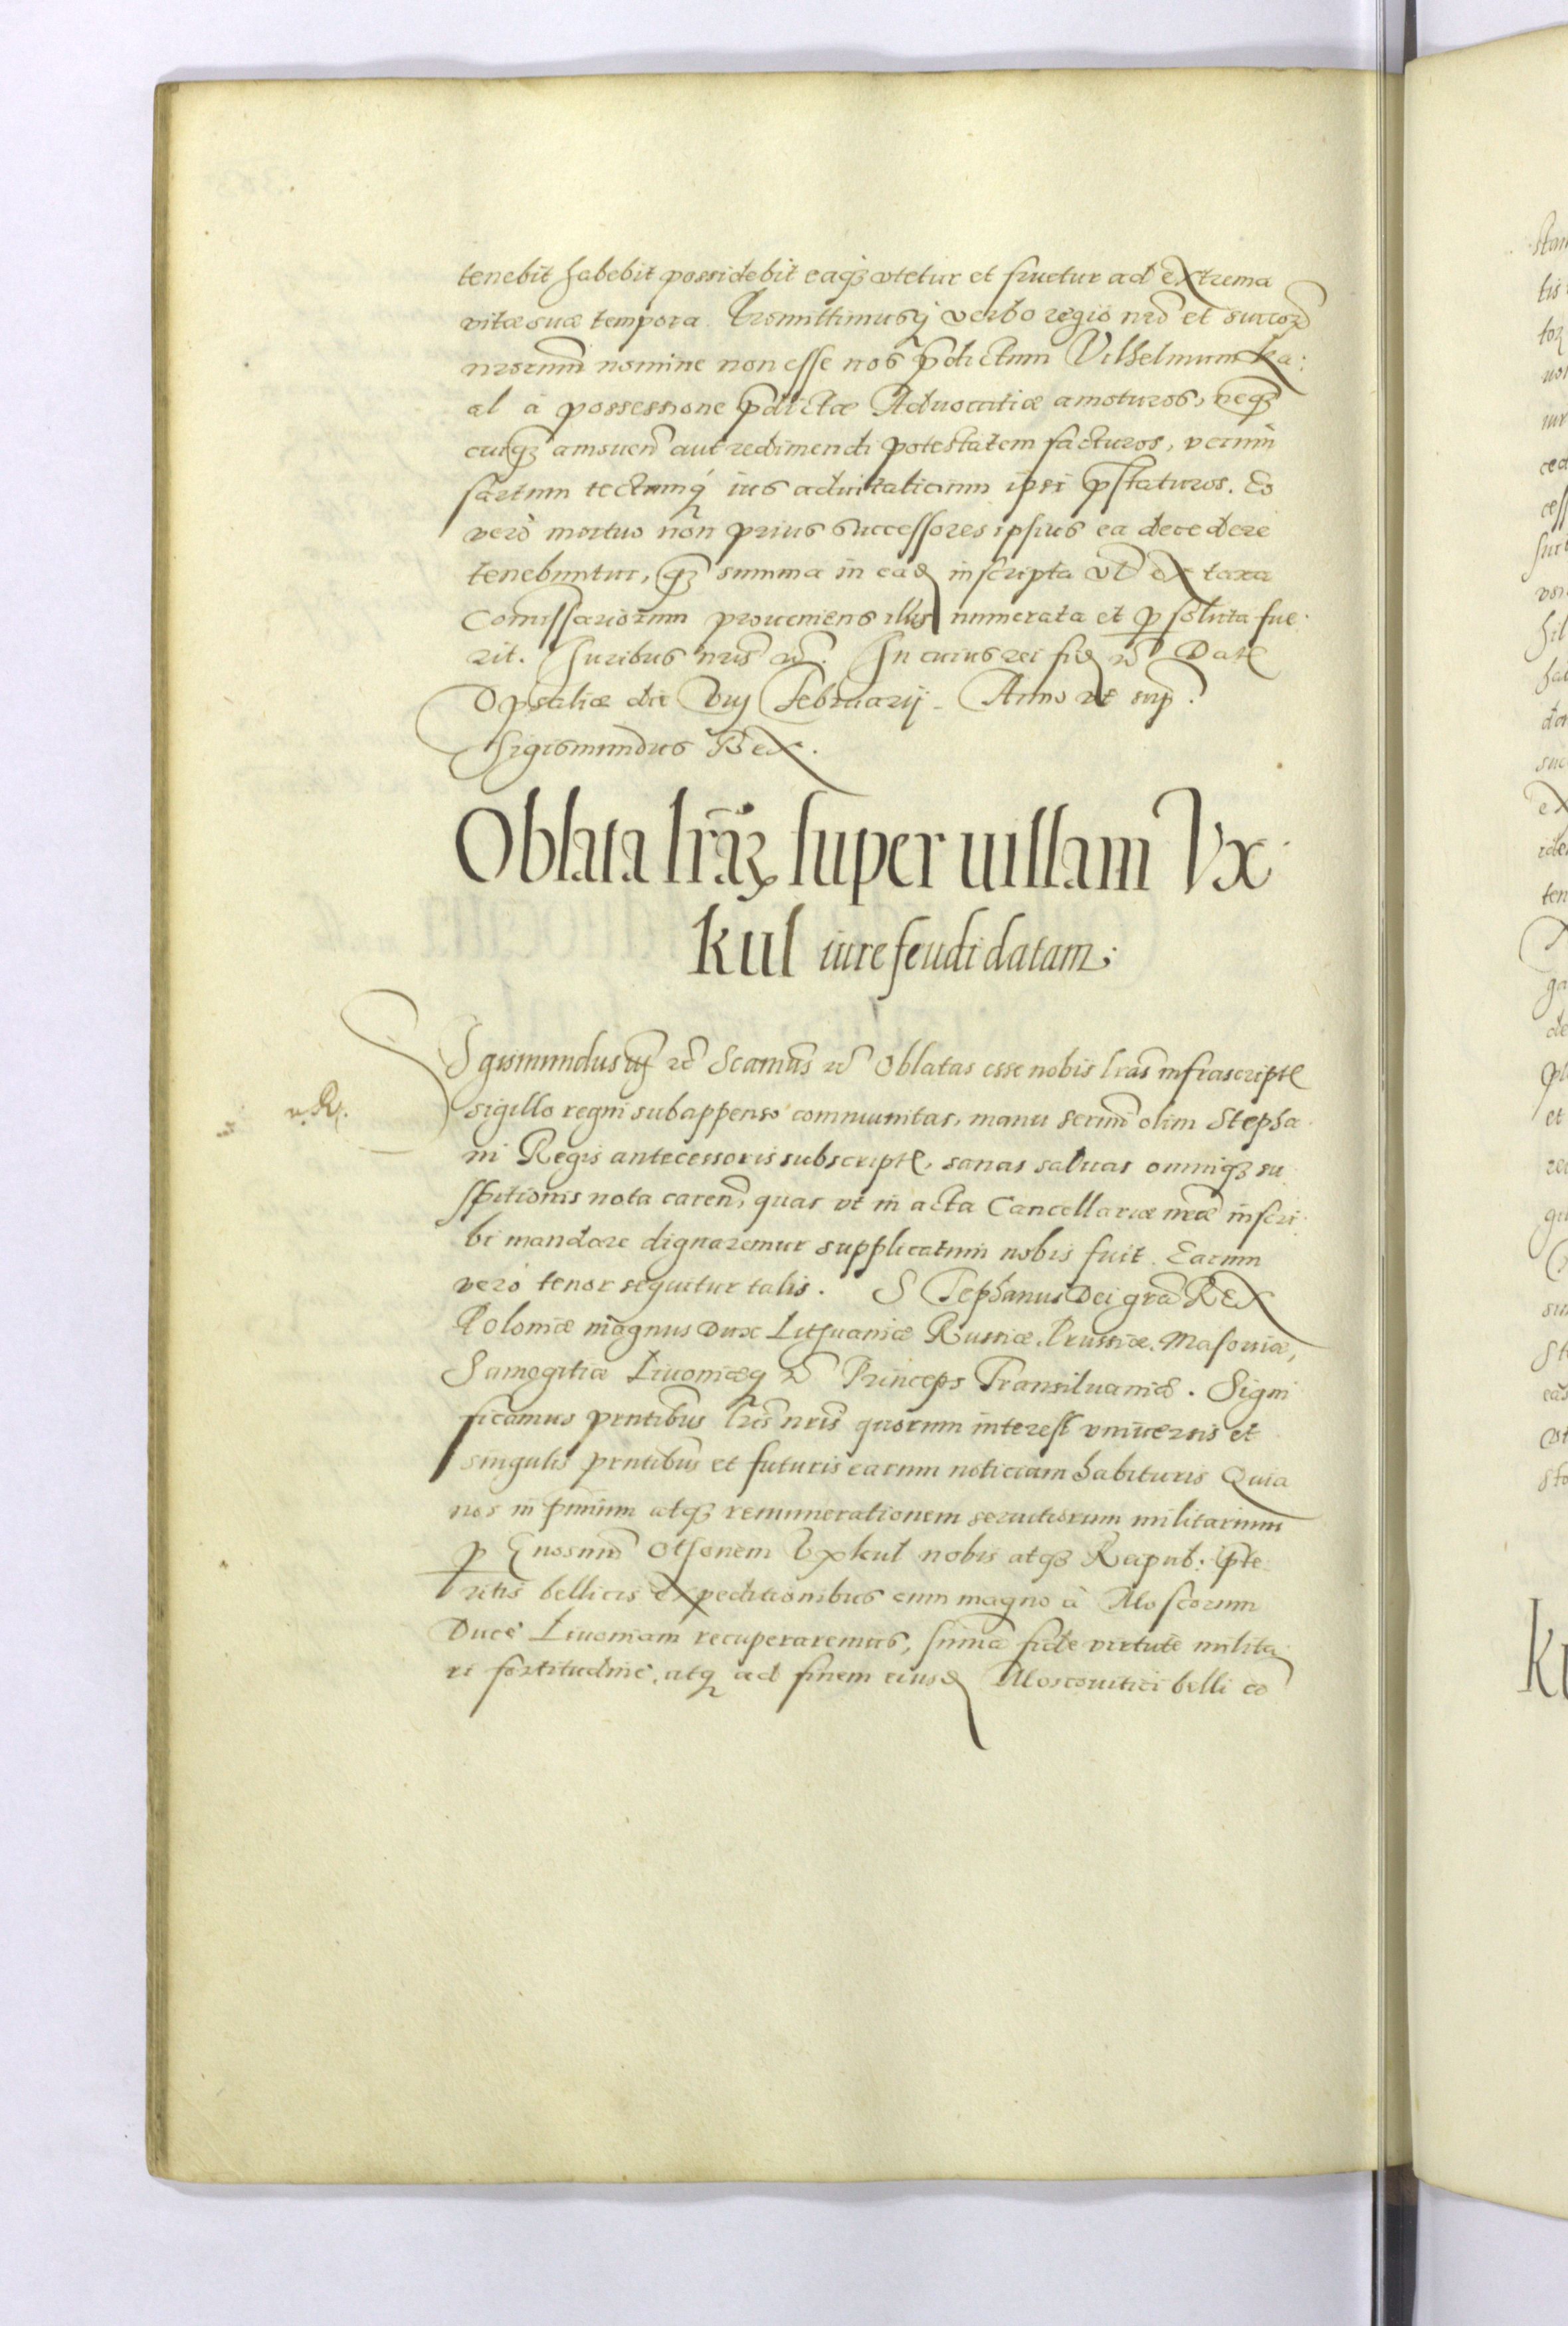 tenebit habebit possidebit eaqꝫ vtetur et fruetur ad extrema
vitæ suæ tempora. Promittimusqꝫ verbo regio nr̄o et succor̄
nrorum nomine non esse nos p̄dictum Vilhelmum Ka:
al à possessione p̄dictæ Aduocatiæ amoturos, neqꝫ
cuiqꝫ amouen̄ aut redimendi potestatem facturos, verum
sartum tectumqꝫ ius aduitalicium ipsi p̄staturos. Eo
verò mortuo non prius successores ipsius ea decedere
tenebuntur, qꝫ summa in ead inscripta vl ex taxa
Comissariorum proueniens illis numerata et ꝑsoluta fue
rit. Iuribus nris etc. In cuius rei fid etc Dat
Opsaliæ die Vıȷ Februarij. Anno vt sup.
Sigismundus Rex.
Oblata lr̄aꝝ super uillam Vx
kul iure feudi datam;
Sigismundus iij etc Scamus etc Oblatas esse nobis lr̄as infrascript
sigillo regni subappenso communitas, manu sermi olim Stepha
ni Regis antecessoris subscript, sanas saluas omniqꝫ su
spitionis nota caren̄, quas vt in acta Cancellariæ nr̄æ inscri
bi mandare dignaremur supplicatum nobis fuit. Earum
verò tenor sequitur talis. Stephanus Dei gr̄a Rex
Poloniæ magnus Dux Lithuaniæ Russiæ. Prussiæ. Masouiæ,
Samogitiæ Liuoniæqꝫ etc Princeps Transiluaniæ. Signi
ficamus pr̄ntibus lr̄is nr̄is quorum interest vniuersis et
singulis pr̄ntibus et futuris earum noticiam habituris Quia
nos in p̄mium atqꝫ remunerationem seruitiorum militarium
ꝑ Gnosum Othonem Vxkul nobis atqꝫ Reipub: p̄te
ritis bellicis expeditionibus cum magno à Moscorum
Duce Liuoniam recuperaremus, suma fide virtute milita
ri fortitudine, atqꝫ ad finem eiusd Moscouitici belli co